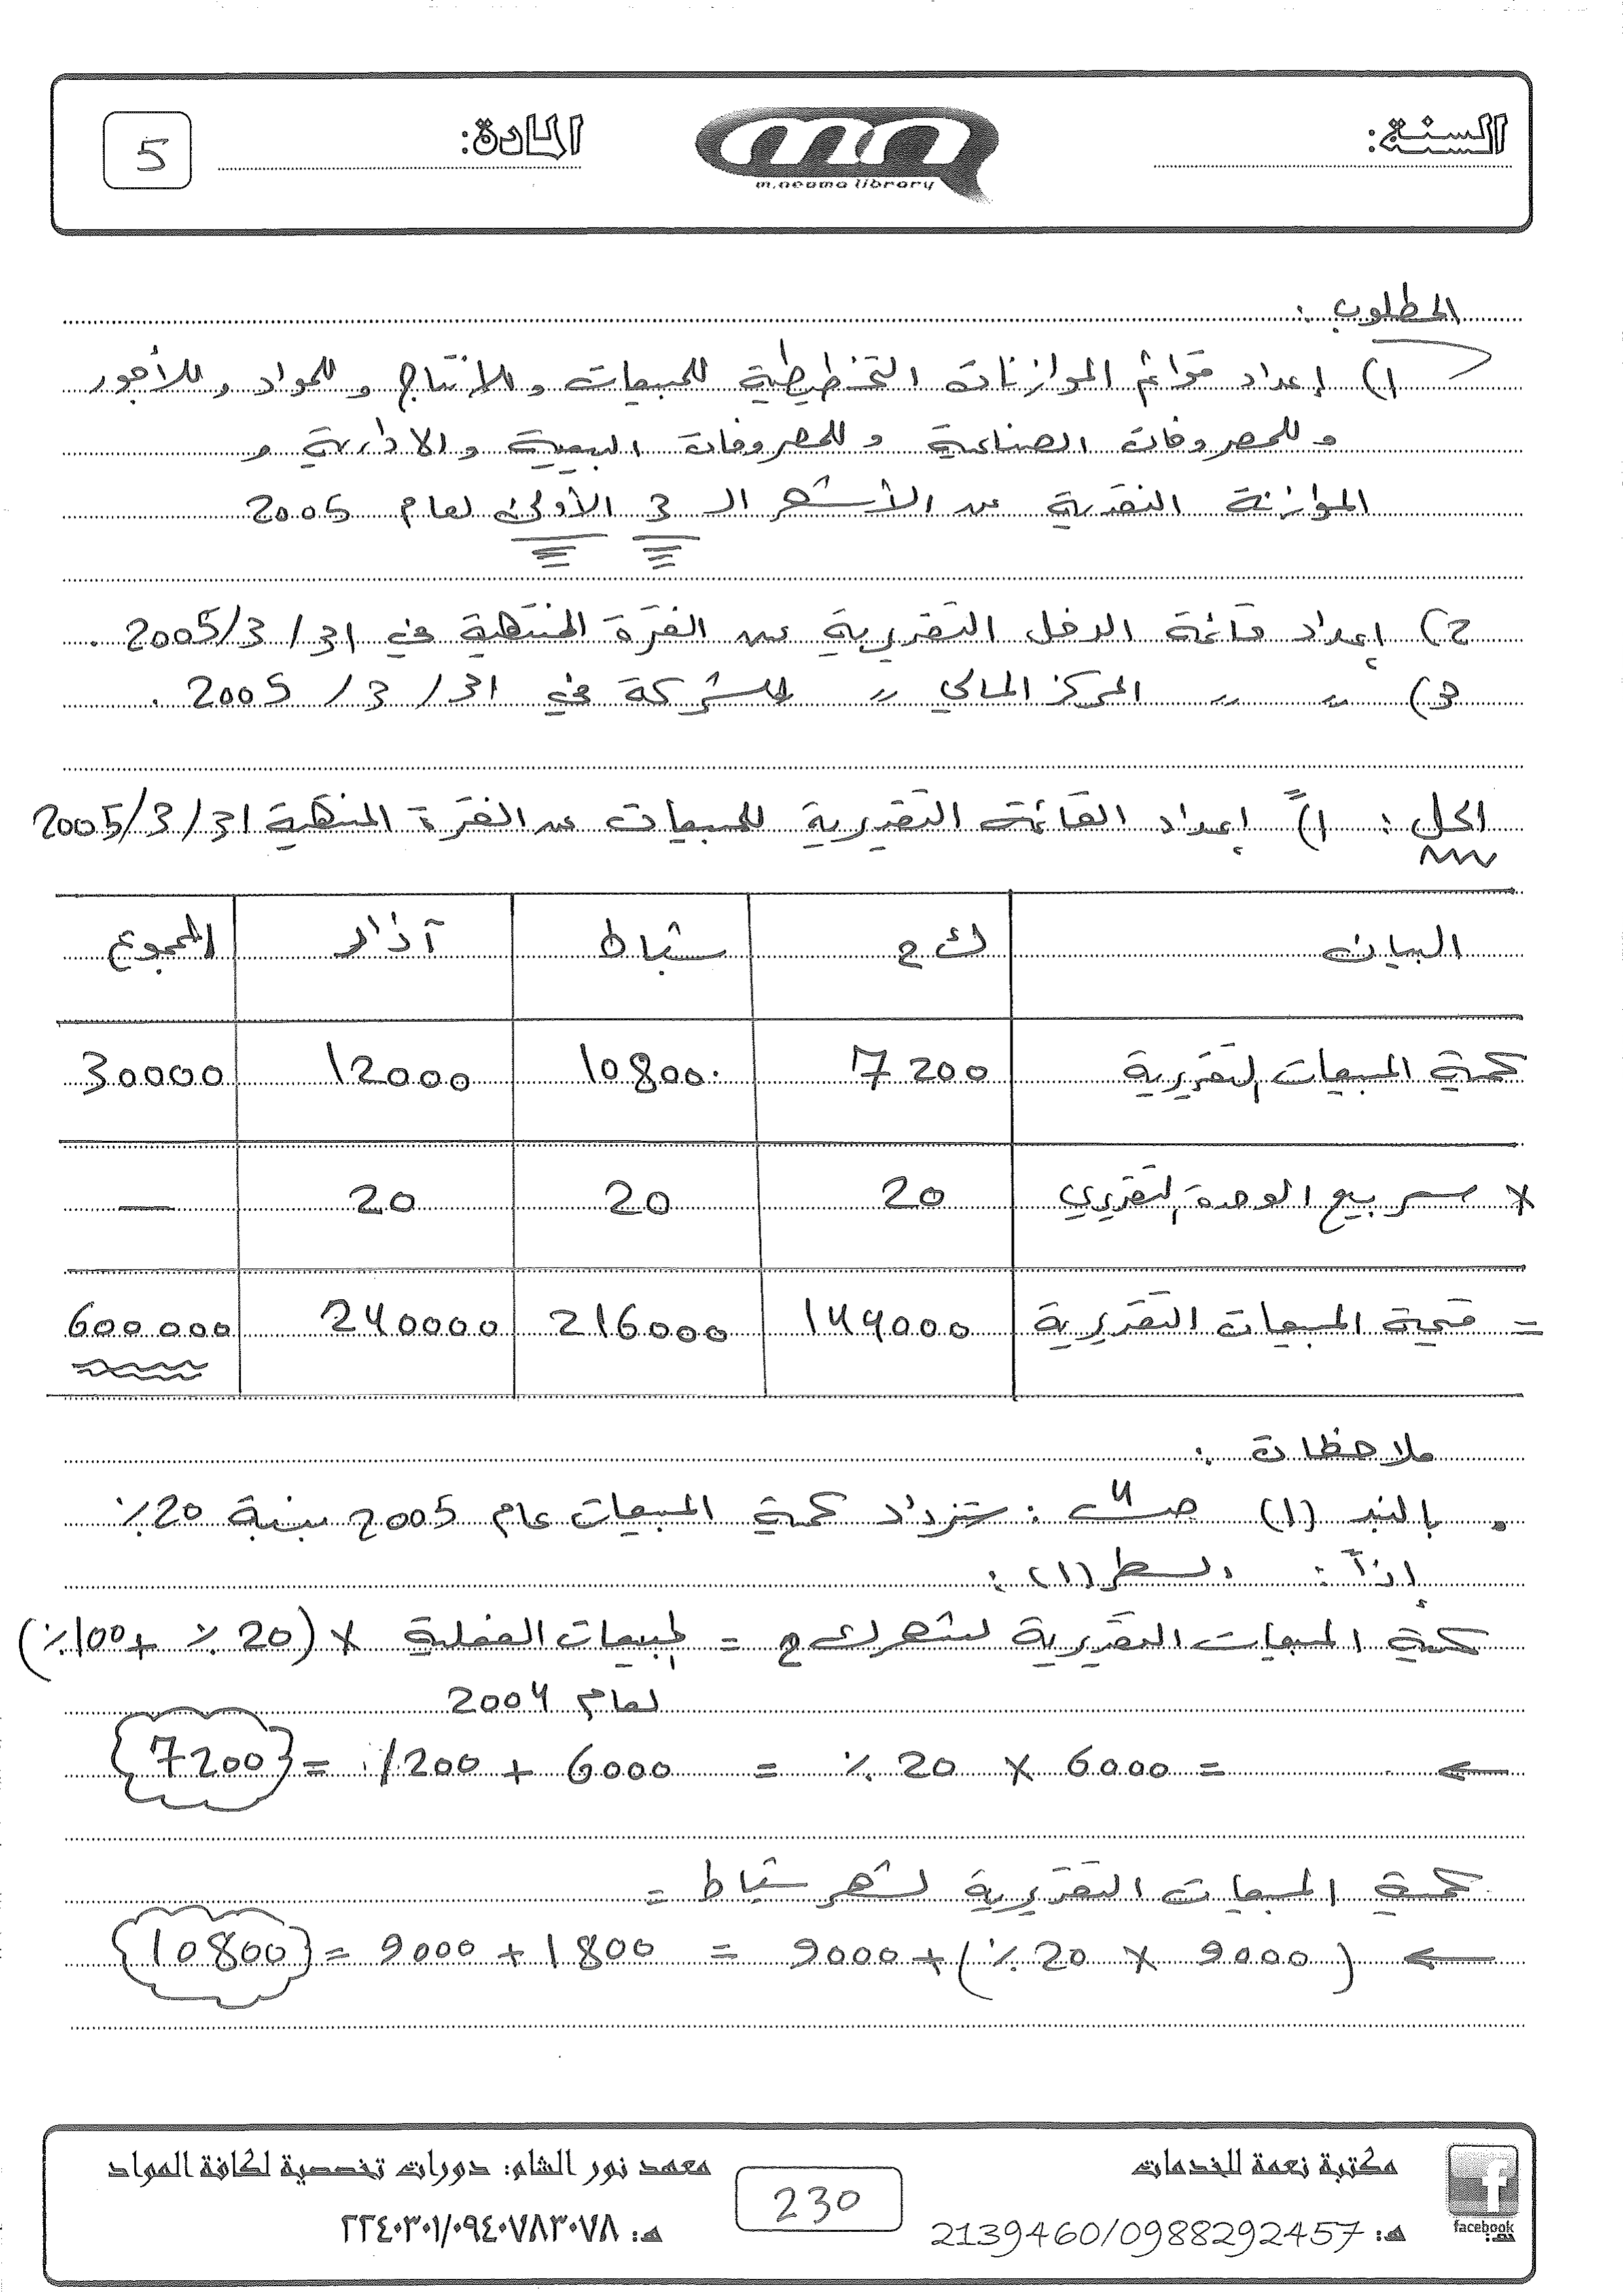 السنة:
m.neama library
المادة:
5
المطلوب:
1) إعداد قوائم الموازنات التخطيطية للمبيعات وللإنتاج و للمواد وللأجور
و للمصروفات الصناعية و للمصروفات البيعية والادارية و
الموازنة النقدية عن الأشهر الـ 3 الأولى لعام 2005
2) إعداد قائمة الدخل التقديرية عن الفترة المنتهية في 31/3/2005.
3) 〃 〃 المركز المالي 〃 للشركة في 31/3/2005.
الحل: 1) إعداد القائمة التقديرية للمبيعات عن الفترة المنتهية 31/3/2005
البيان ك2 شباط آذار المجموع
كمية المبيعات التقديرية 7200 10800 12000 30000
× سعر بيع الوحدة التقديري 20 20 20 —
= قيمة المبيعات التقديرية 144000 216000 240000 600000
ملاحظات:
• بالبند (1) صـ4: ستزداد كمية المبيعات عام 2005 بنسبة 20%
إذاً: السطر (1):
كمية المبيعات التقديرية لشهر ك2 = المبيعات الفعلية × (20% + 100%)
لعام 2004
← = 6000 × 20% = 6000 + 1200 = 7200
كمية المبيعات التقديرية لشهر شباط =
← (9000 × 20%) + 9000 = 1800 + 9000 = 10800
facebook
مكتبة نعمة للخدمات
هـ: 2139460/0988292457
230
معهد نور الشام: دورات تخصصية لكافة المواد
هـ: ٢٢٤٠٣٠١/٠٩٤٠٧٨٣٠٧٨